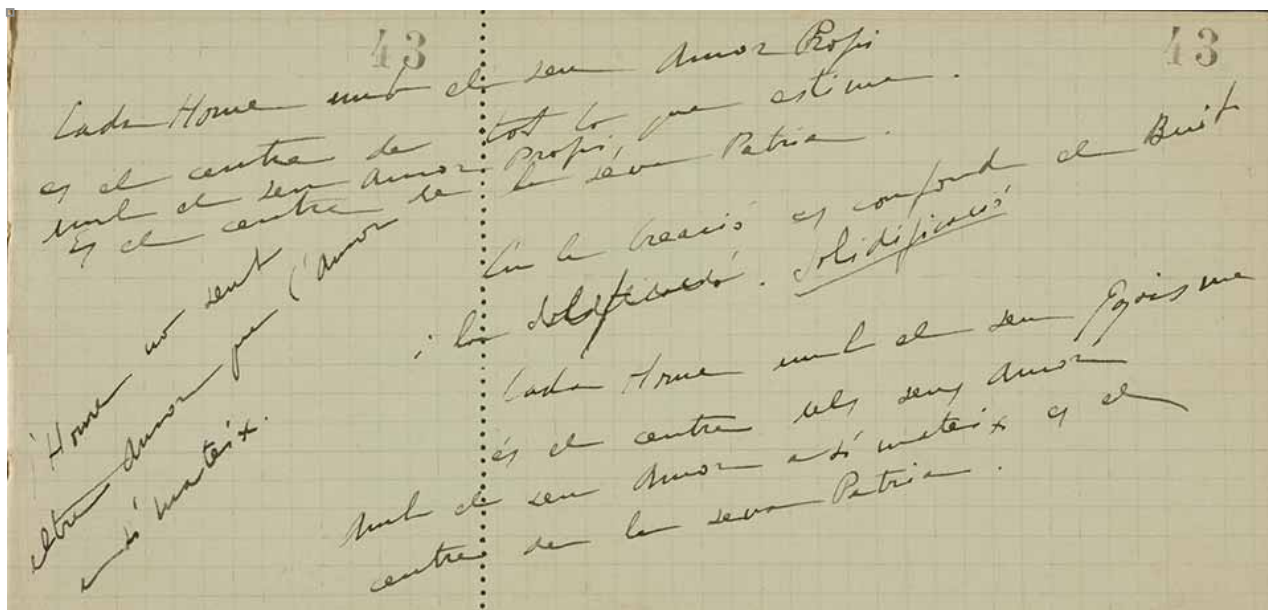 43
43
Cada Home amb el seu Amor Propi
es el centre de tost lo que estima.
amb el seu Amor Propi,
És el centre de la séva Patria.
En la Creació es confond el Buit
i la Solidificació
Cada Home amb el seu Egoisme
és el centre dels seus Amor
Amb el seu Amor a sí mateix es el
centre de la seva Patria.
l'Home no sent
altre Amor que l'Amor
a sí mateix.